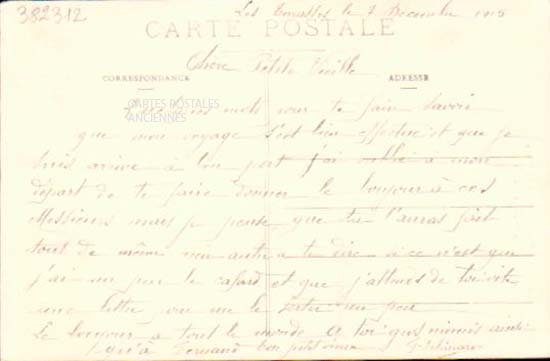 382312
Les le 7 Décembre 1915
CARTE POSTALE
Chère Petite Vieille
CORRESPONDANCE ADRESSE
CARTES POSTALES
ANCIENNES
mots pour te faire savoir
que mon voyage s'est bien effectué et que je
suis arrivé à bon port j'ai oublié a mon
départ de te faire donner le bonjour à ces
Messieurs mais je pense que tu l'auras fait
tout de même rien autre a te dire si ce n'est que
j'ai un peu le cafard et que j'attends de toi vite
une lettre pour me le un peu
Le bonjour a tout le monde A toi gros mimis ainsi
qu'à Fernand ton petit vieux